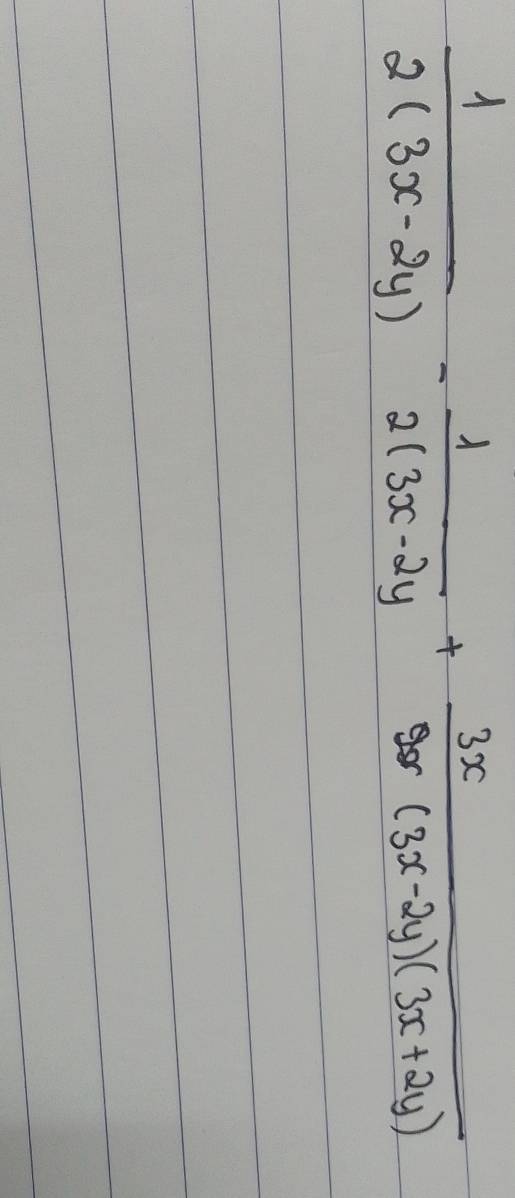 1/2(3x-2y) - 1/2(3x-2y + 3x/(3x-2y)(3x+2y)